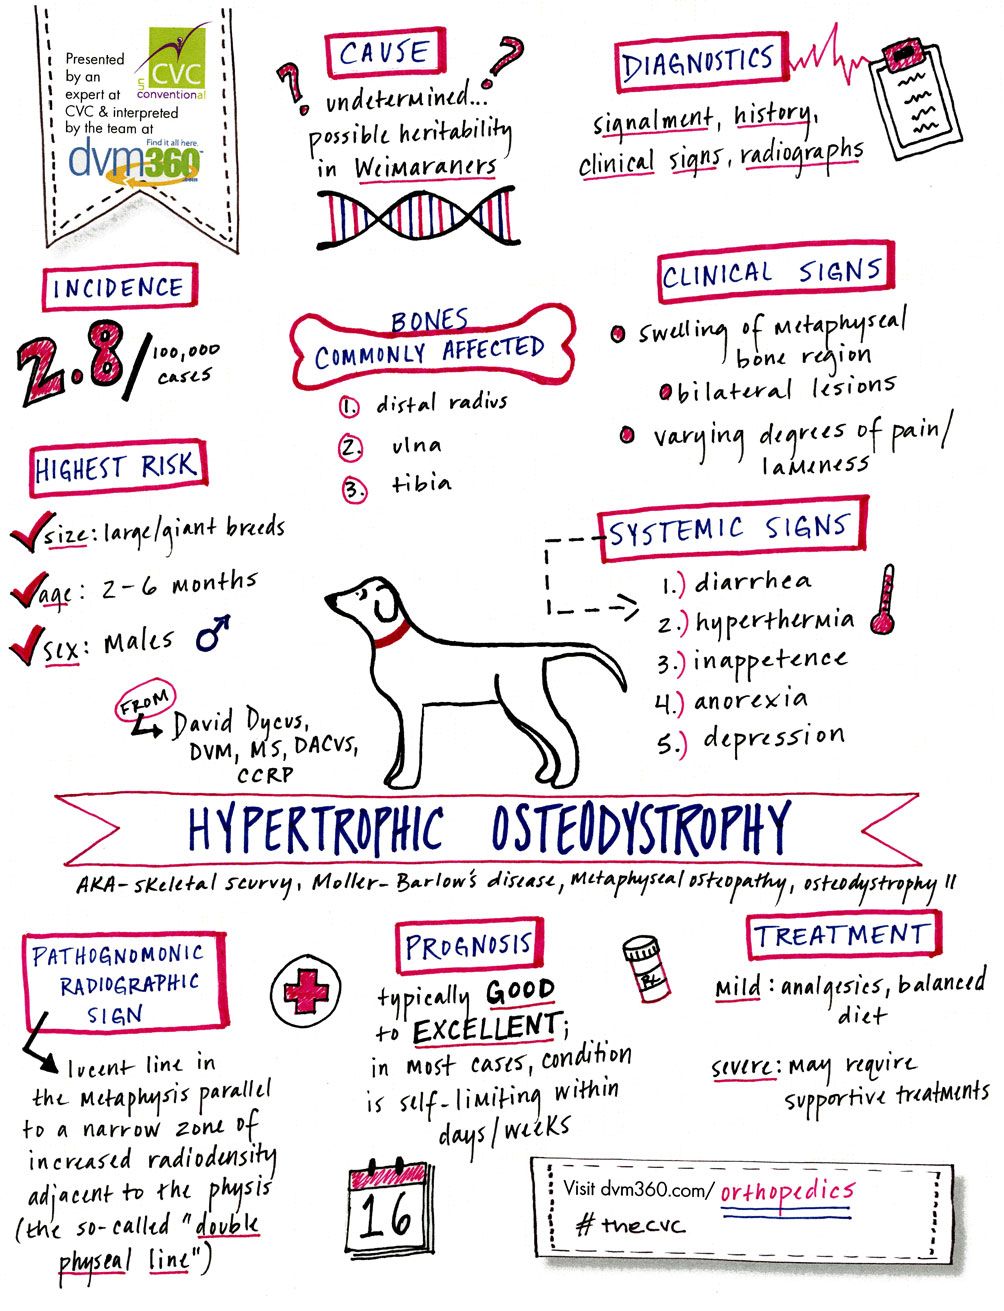 Presented
by an
expert at
CVC & interpreted
by the team at
CVC
conventional
Find it all here.
dvm360
.com
CAUSE
? ?
undetermined...
possible heritability
in Weimaraners
DIAGNOSTICS
signalment, history,
clinical signs, radiographs
INCIDENCE
2.8/100,000
cases
BONES
COMMONLY AFFECTED
1. distal radius
2. ulna
3. tibia
CLINICAL SIGNS
swelling of metaphyseal
bone region
bilateral lesions
varying degrees of pain/
lameness
HIGHEST RISK
size: large/giant breeds
age: 2-6 months
sex: Males ♂
SYSTEMIC SIGNS
1.) diarrhea
2.) hyperthermia
3.) inappetence
4.) anorexia
5.) depression
FROM
David Dycus,
DVM, MS, DACVS,
CCRP
HYPERTROPHIC OSTEODYSTROPHY
AKA- skeletal scurvy, Moller-Barlow's disease, Metaphyseal osteopathy, osteodystrophy II
PATHOGNOMONIC
RADIOGRAPHIC
SIGN
lucent line in
the metaphysis parallel
to a narrow zone of
increased radiodensity
adjacent to the physis
(the so-called "double
physeal line")
PROGNOSIS
typically GOOD
to EXCELLENT;
in most cases, condition
is self-limiting within
days/weeks
16
Rx
TREATMENT
Mild: analgesics, balanced
diet
severe: may require
supportive treatments
Visit dvm360.com/orthopedics
#thecvc